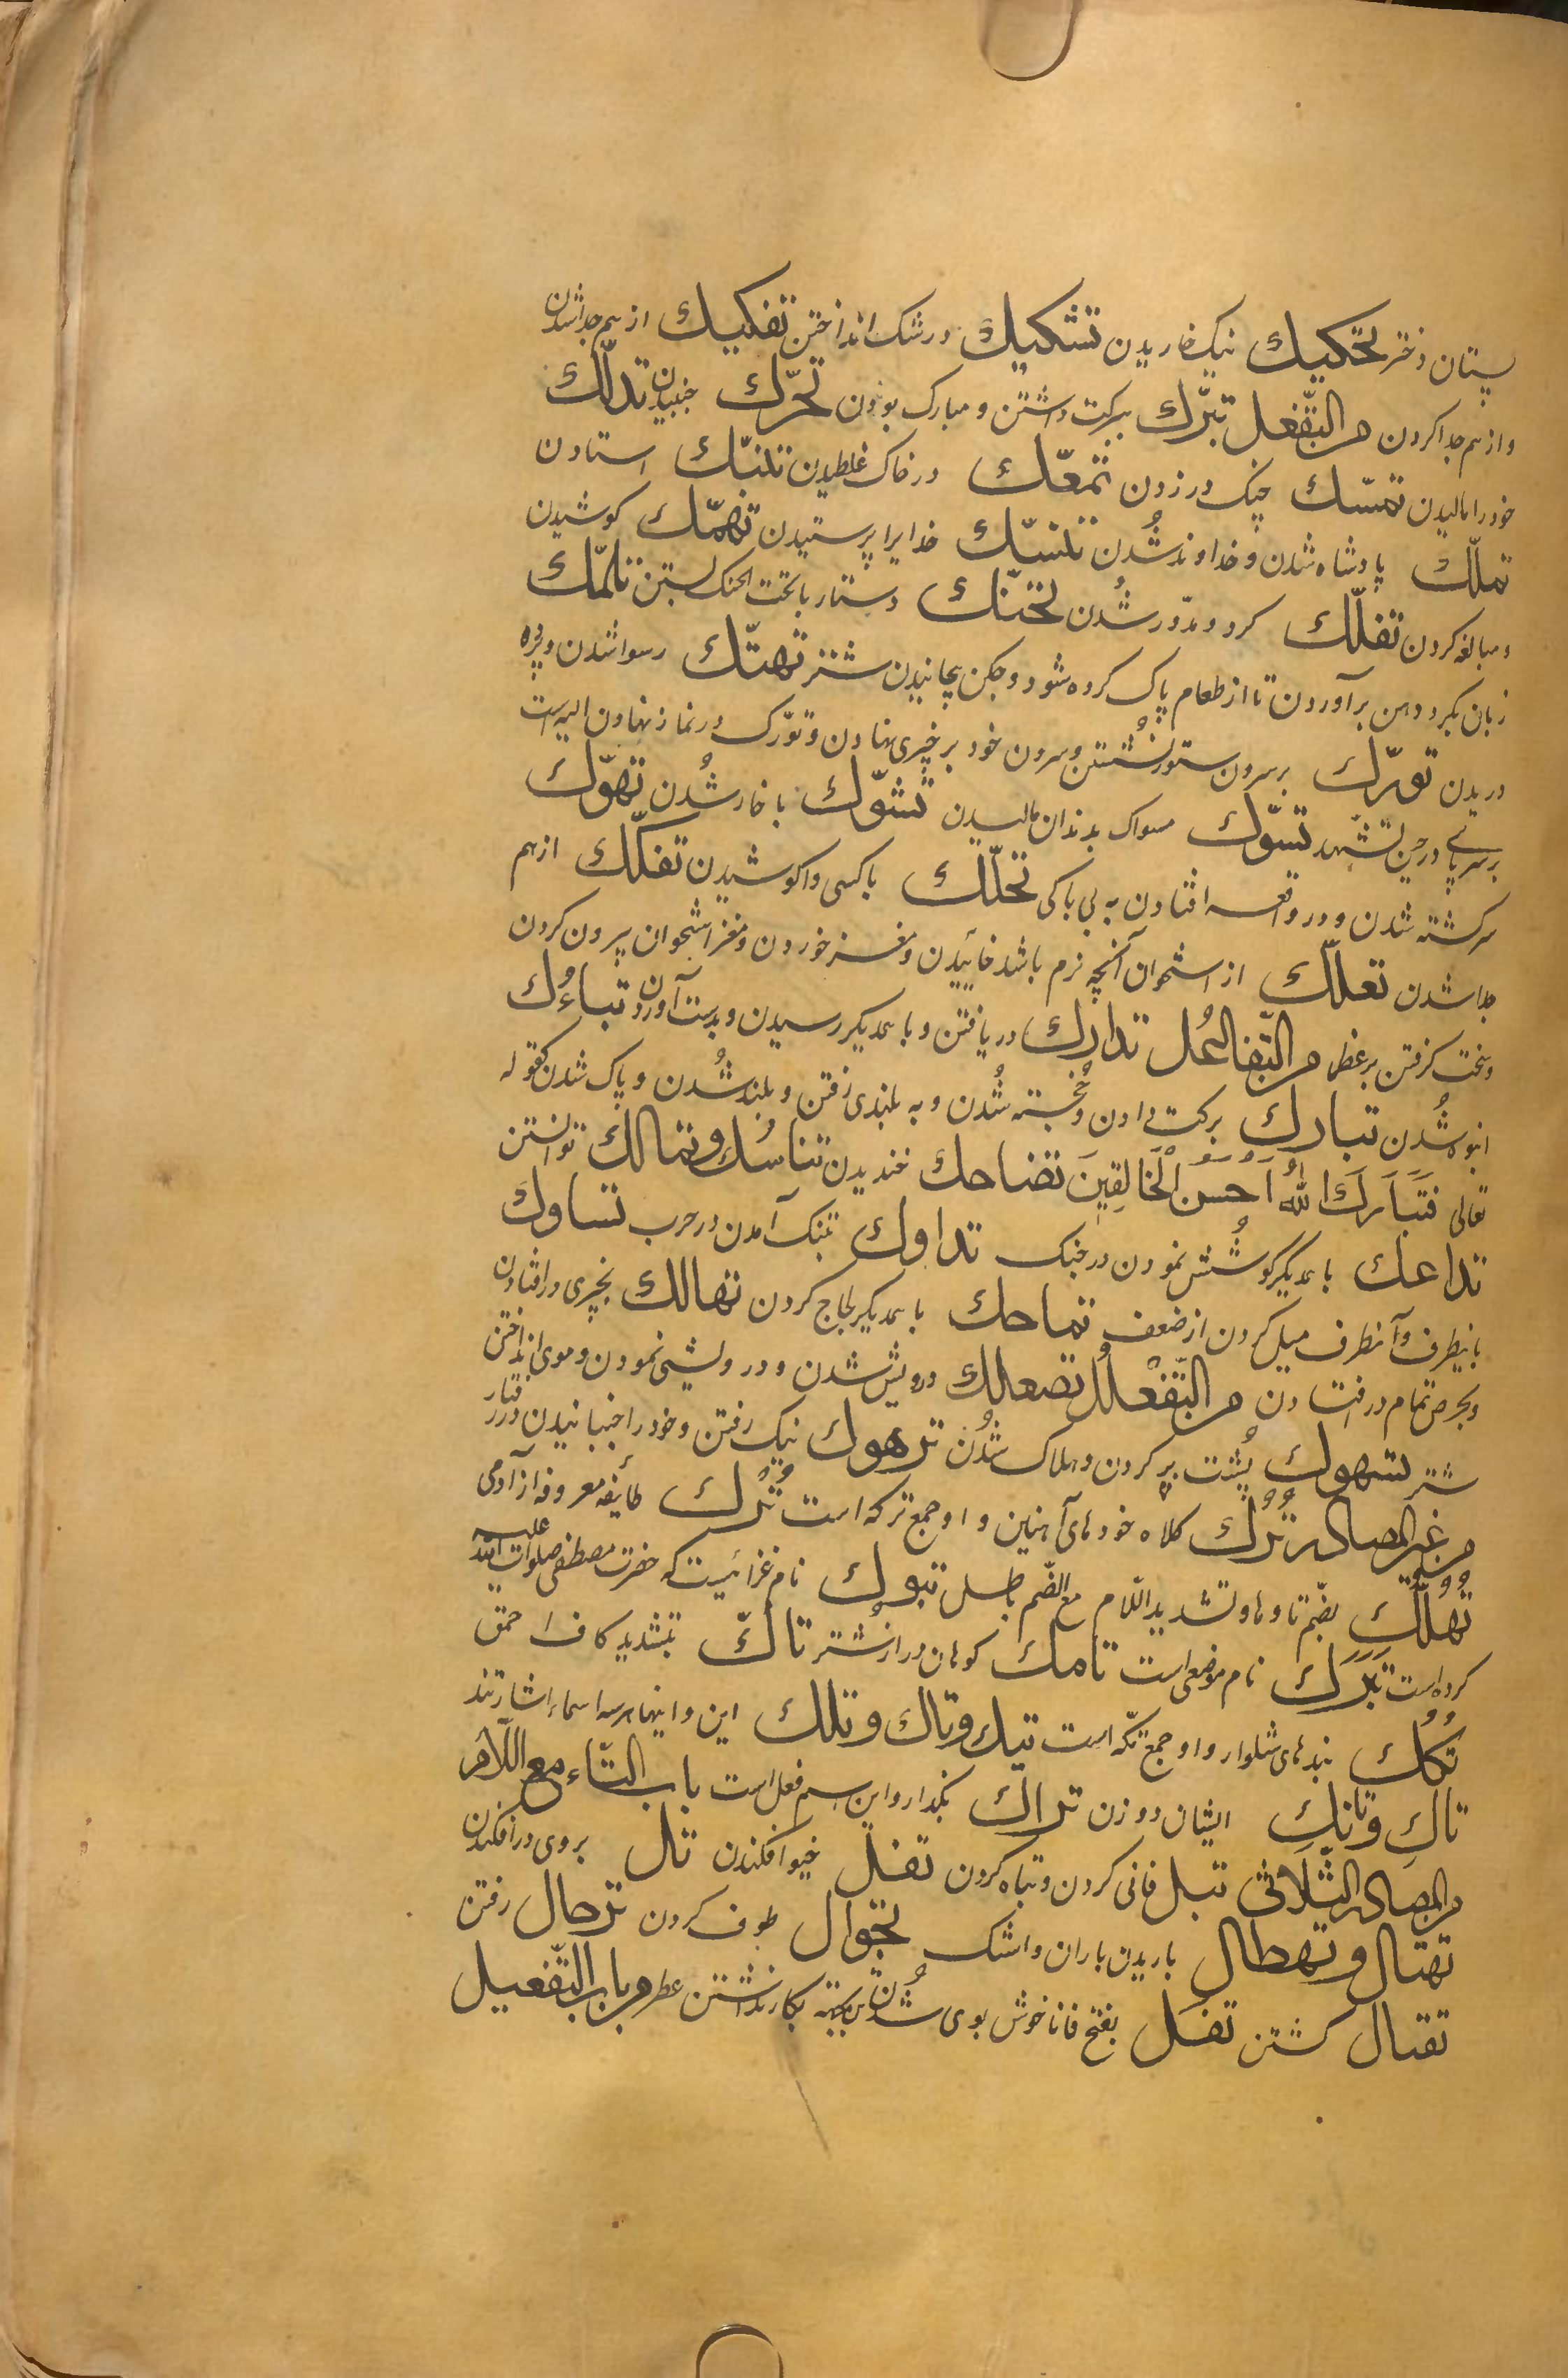 پستان دختر تحكيك نیک خاریدن تشكيك در شک انداختن تفكيك از هم جدا شدن
و از هم جدا کردن من التّفعل تبرّك ببرکت داشتن و مبارک بودن تحرّك جنبیدن تدلّك
خود را مالیدن تمسّك چنگ در زدن تمعّك در خاک غلطیدن تلبّك استادن
تملّك پادشاه شدن و خداوند شُدن تنسّك خدایرا پرستیدن تهمّك کوشیدن
و مبالغه کردن تفلّك کرد و مدّور شُدن تحنّك دستار با تحت الحنک بستن تلمّك
زبان بکرد دهن برآوردن تا از طعام پاک کرده شود و جکن پچانیدن شتر تهتّك رسوا شدن و پرده
دریدن تورّك بر سرون ستور نشستن و سرون خود بر چیزی نهادن و تورّک در نماز نهادن الیه است
بر سر پای در حین تشهد تسوّك مسواک بدندان مالیدن تشوّك با خار شُدن تهوّك
سرکشته شدن و در واقعه افتادن به بی باکی تحلّك با کسی واکوشیدن تفكّك از هم
جدا شدن تعلّك از استخوان آنچه نرم باشد خائیدن و مغز خوردن و مغز استخوان بیرون کردن
و سخت کرفتن بر غطا من التّفاعُل تدارك دریافتن و با همدیکر رسیدن و بدست آوردن تباءُك
انبوه شُدن تبارك برکت دادن و خُجسته شُدن و به بلندی رفتن و بلند شُدن و پاک شدن کقوله
تعالی فَتَبَارَكَ اللهُ اَحْسَنُ الْخَالِقِينَ تضاحك خندیدن تناسُك و تمالك توانستن
تداعك با همدیکر کوشُش نمودن در جنک تداوك تنک آمدن در حرب تساوك
باینطرف و آنطرف میل کردن از ضعف تماحك با همدیکر لجاج کردن تهالك بچیزی در افتادن
و بحرص تمام در افتادن من التّفَعْلُل تصعلك درویش شدن و درویشی نمودن و موی انداختن
شتر تسهوك پُشت بر کردن و هلاک شُدن ترهوك نیک رفتن و خود را جنبانیدن در رفتار
من غير المصادر تُرْك کلاه خودهای آهنین و او جمع ترکه است تُرْك طایفه معروفه از آدمی
تُهُلِّك بضم تا و ها و تشدید اللام مع الضّم باطل تبوك نام غزائیست که حضرت مصطفی صلوات الله علیه
کرده است تَبَرَك نام موضعی است تامك کوهان دراز شتر تاكّ بتشدید کاف احمق
تُكُك بندهای شلوار و او جمع تکّه است تيك و تاك و تلك این و اینها هر سه اسماء اشارتند
تاكِ و تانِكِ ایشان دو زن تراك بکذار و این اسم فعل است باب التّاء مع اللّام
من المصادر الثّلاثی تبل فانی کردن و تباه کردن تفل خیو افکندن تل بروی در افکندن
تهتال و تهطال باریدن باران و اشک تجوال طوف کردن ترحال رفتن
تقتال کشتن تفَل بفتح فا ناخوش بوی شُدن بجهته بکار نداشتن عطر من باب التّفعيل